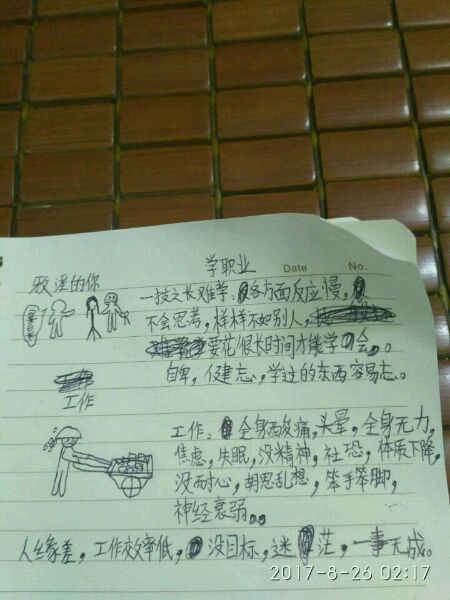 学职业
Date No.
邪淫的你
一技之长难学：各方面反应慢，
不会思考，样样不如别人，
要花很长时间才能学会。
自卑，健忘，学过的东西容易忘。
工作
工作：全身酸疼痛，头晕，全身无力，
焦虑，失眠，没精神，社恐，体质下降，
没耐心，胡思乱想，笨手笨脚，
神经衰弱。
人缘差，工作效率低，没目标，迷茫，一事无成。
2017-8-26 02:17